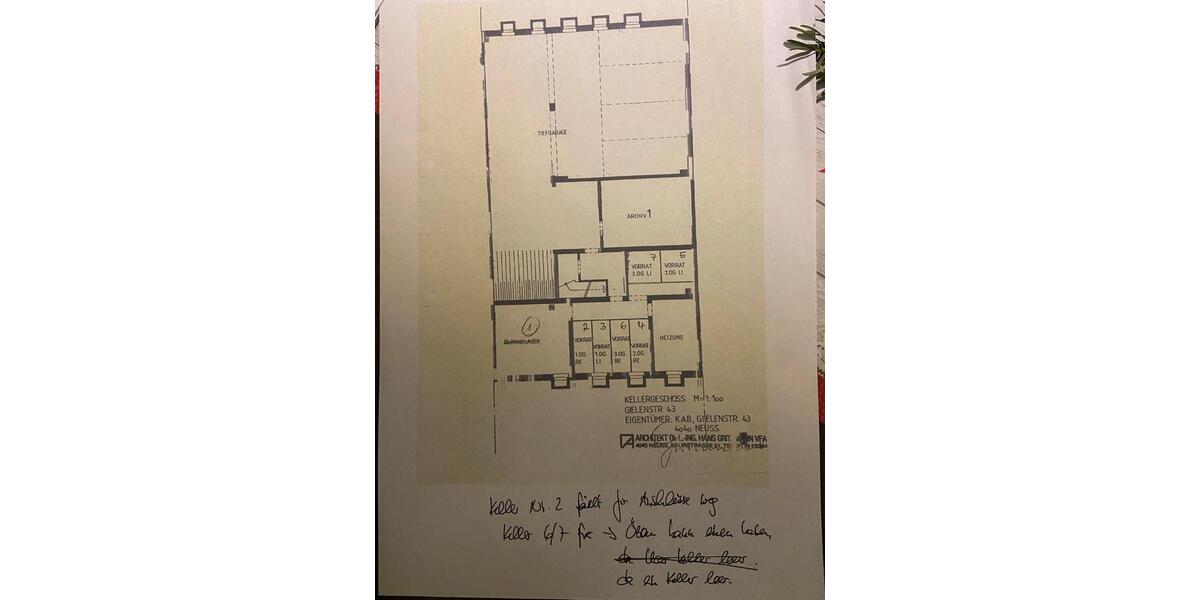 TIEFGARAGE
ARCHIV 1
7
VORRAT
3.OG LI
5
VORRAT
2.OG LI
1
2
VORRAT
1.OG
RE
3
VORRAT
1.OG
LI
6
VORRAT
3.OG
RE
4
VORRAT
2.OG
RE
HEIZUNG
KELLERGESCHOSS M=1:100
GIELENSTR 43
EIGENTÜMER. K.A.B, GIELENSTR. 43
4040 NEUSS
ARCHITEKT ING. HANS VFA
4040 NEUSS,
Keller Nr. 2 fällt für Anschlüsse weg
Keller 6/7 frei → kann einen haben,
da ein Keller leer.